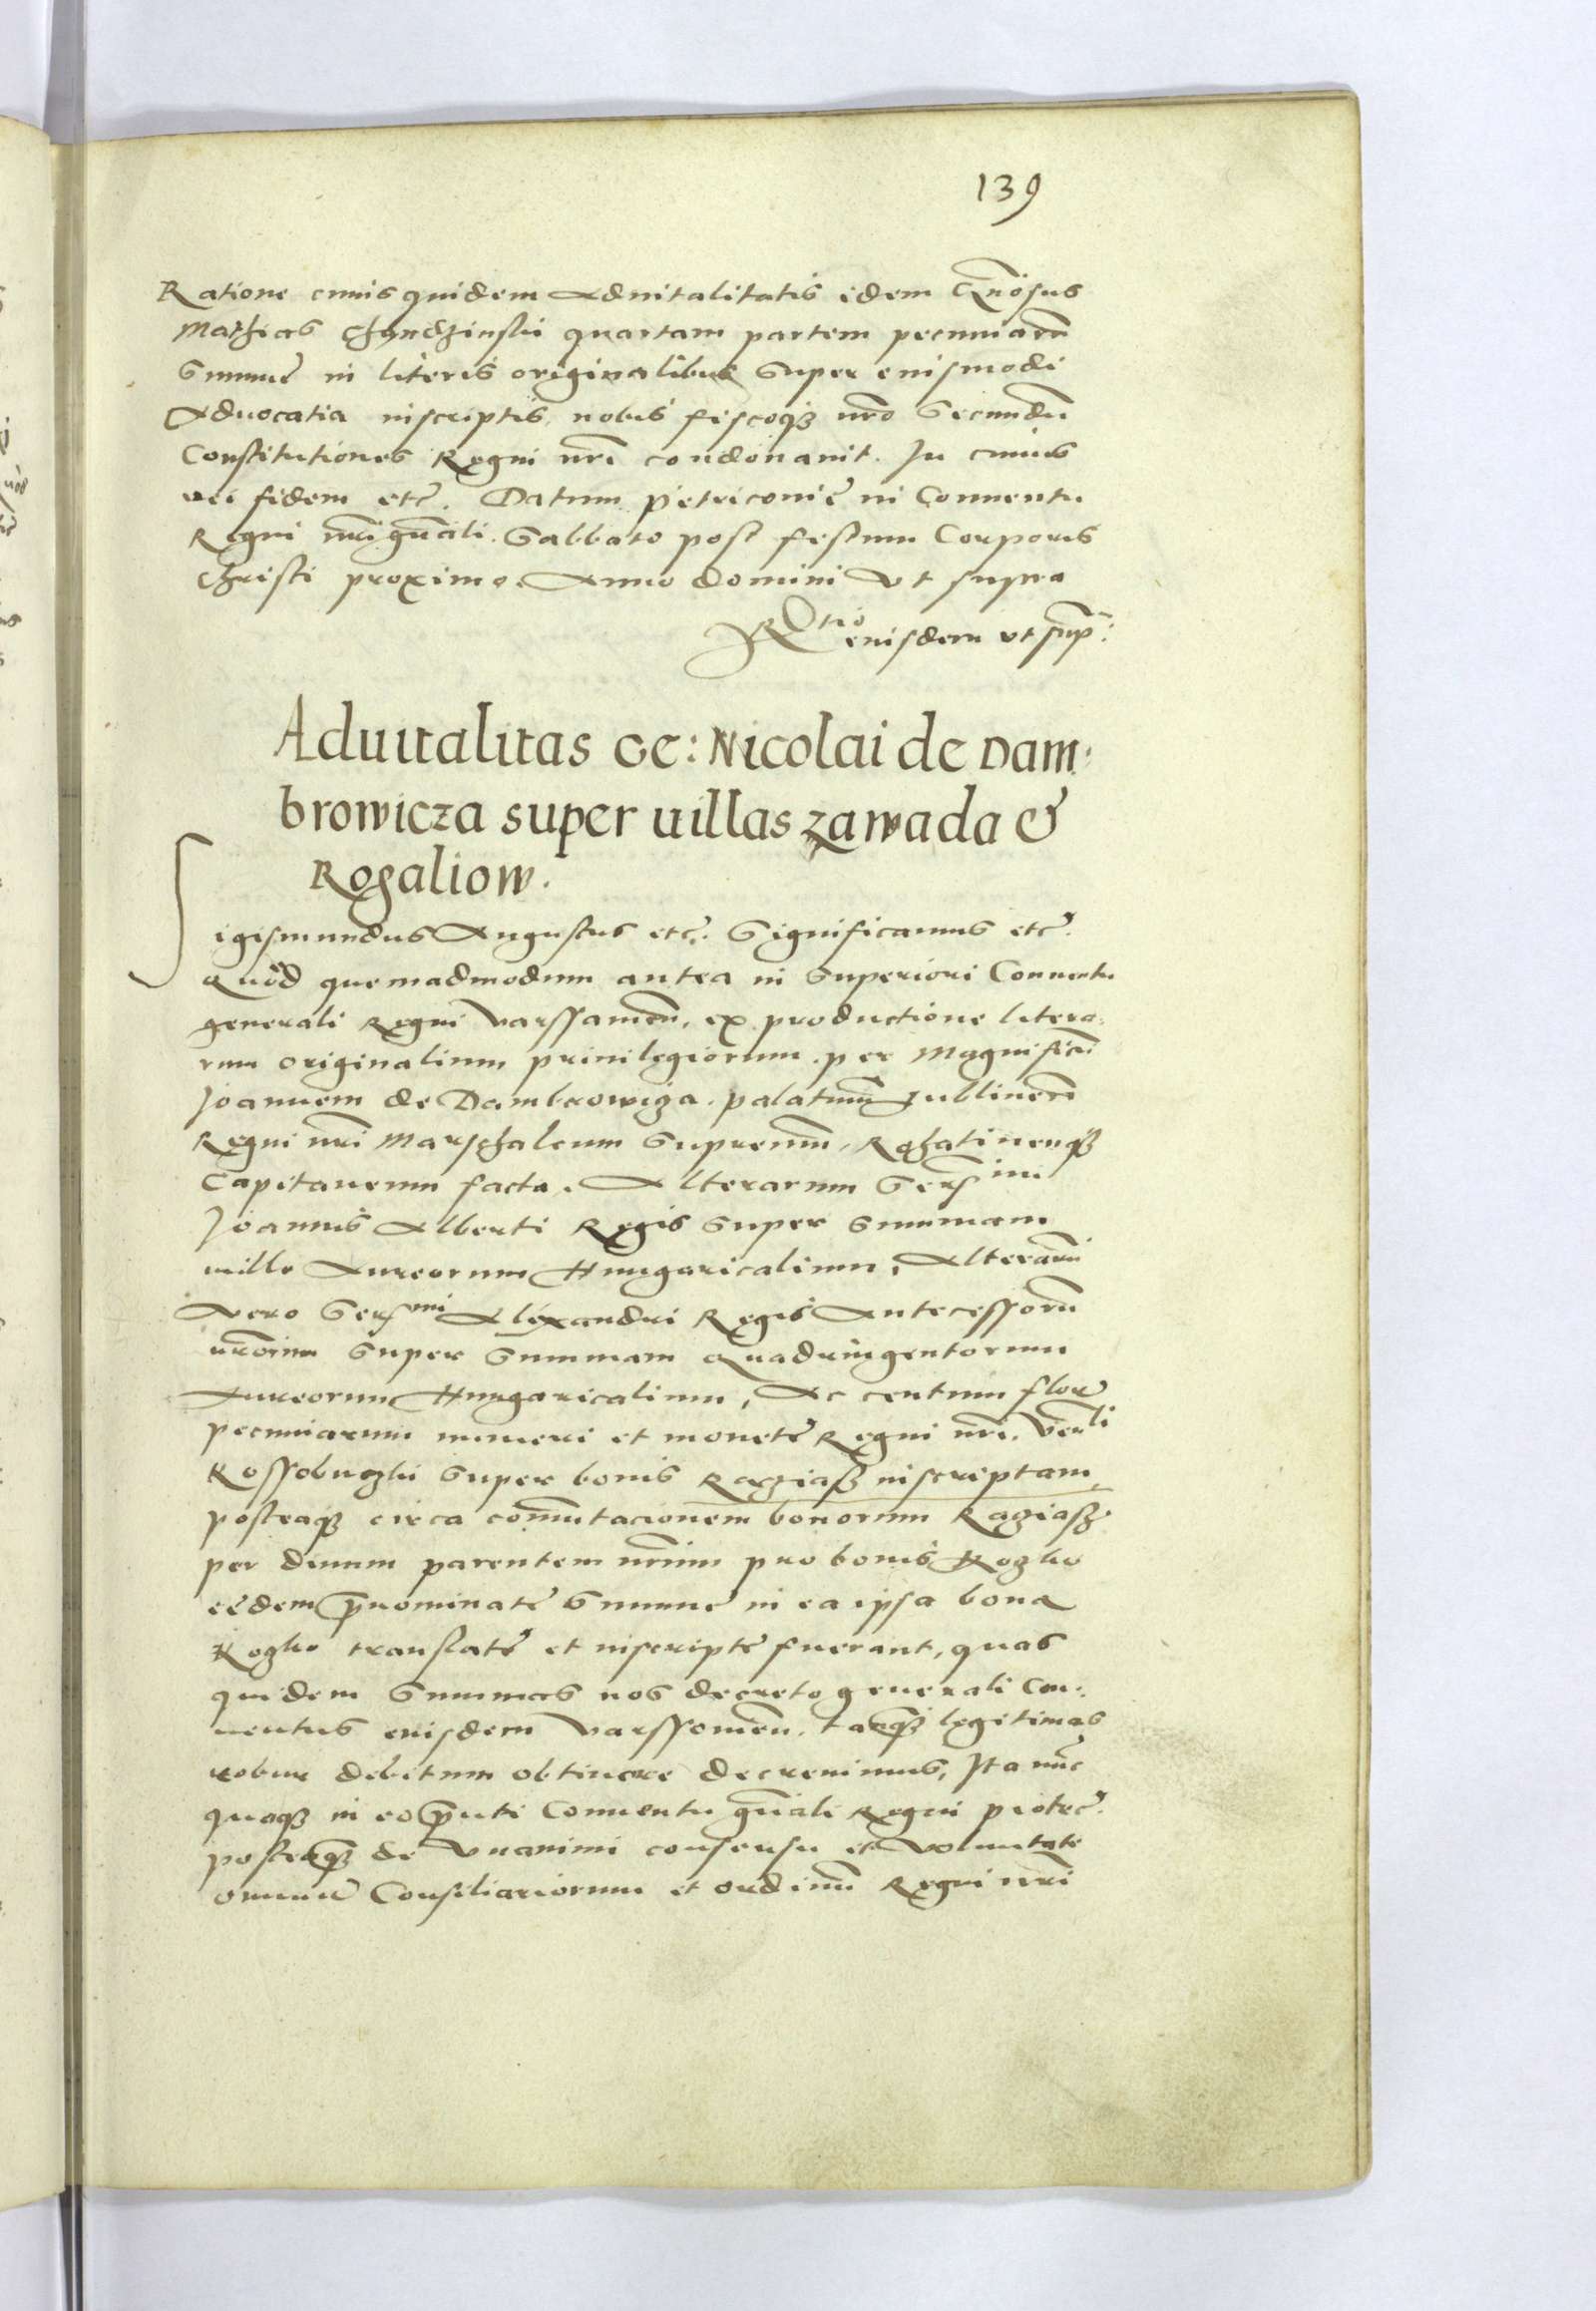 139
Ratione cuius quidem Aduitalitatis idem Gn̄osus
Mathias Chyndzinskj quartam partem pecuniarū
Summę in literis originalibus super eiusmodi
Aduocatia inscriptis, nobis fiscoq3 nr̄o Secundū
Constitutiones Regni nr̄i condonauit. In cuius
rei fidem etc̄. Datum Pietricouię in Conuentu
Regni nr̄i gn̄ali. Sabbato post festum Corporis
Christi proximo. Anno domini Vt supra
Rtio eiusdem vt sup̄:
Aduitalitas Ge: Nicolai de Dam-
browicza super uillas Zawada &
Rogaliow.
Sigismundus Augustus etc̄. Significamus etc̄.
Quod quemadmodum antea in Superiori Conuentu
generali Regni Varssauien̄, ex productione litera-
rum originalium priuilegiorum per Magnificū
Joannem de Dambrowiza. palatinū Lublinen̄
Regni nr̄i Marschalcum Supremū, Rohatinenq3
Capitaneum facta. Alterarum Sersmi
Joannis Alberti Regis super summam
mille Aureorum Hungaricalium, Alterarū
Vero Sersmi Alexandri Regis Antecessorū
nr̄orum super Summam Quadringentorum
Aureorum Hungaricalium, Ac centum flor̄
pecuniarum numeri et monetę Regni nr̄i. Venli
Kossobuczki super bonis Racziasz inscriptam,
posteaq3 circa com̄utacionem bonorum Racziasz
per diuum parentem nr̄um pro bonis Rogliow
eędem p̄nominatę Summę in ea ipsa bona
translatę et inscriptę fuerant, quas
quidem Summas nos decreto generali Con-
uentus eiusdem Varssouien̄. tanq3 legitimas
robur debitum obtinere decreuimus, Ita nūc
quoq3 in eo p̄nti Conuentu gn̄ali Regni piotrc̄.
posteaq3 de Vnanimi consensu et voluntate
omniū Consiliariorum et ordinū Regni nr̄i